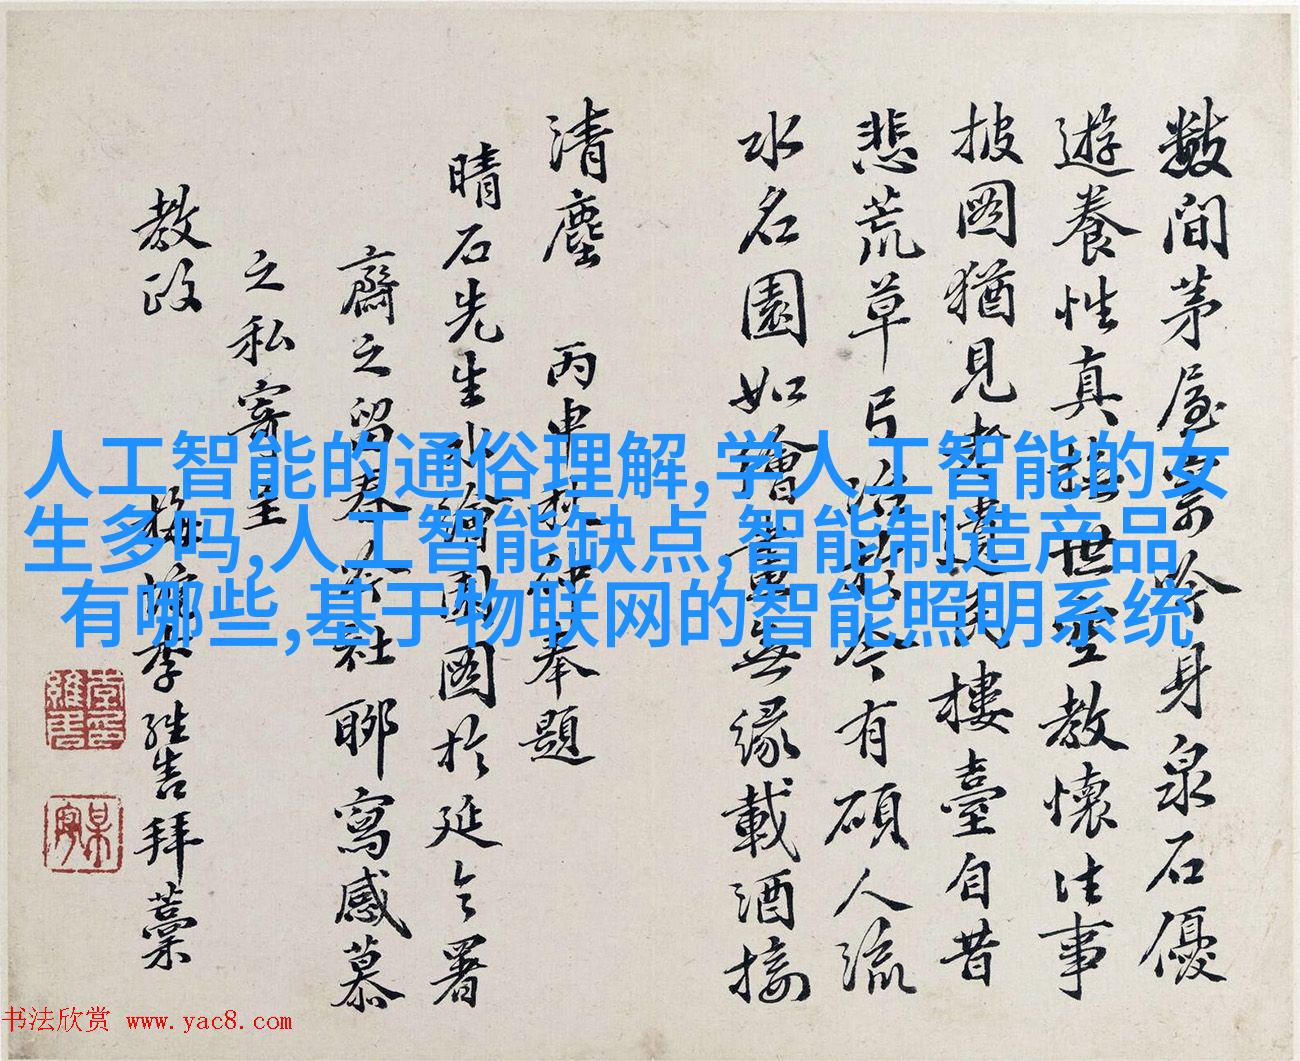 人工智能的通俗理解,学人工智能的女
生多吗,人工智能缺点,智能制造产品
有哪些,基于物联网的智能照明系统
數間茅屋吟身泉石優
遊養性真世空教懷往事
披圖猶見樓臺自昔
悲荒草弓冶於今有碩人流
水名園如繪畫無緣載酒接
清塵 丙申秋仲奉題
晴石先生水繪園圖於延令署
齋之留春社聊寫感慕
之私寄呈
教政 梅李拜藁
书法欣赏 www.yac8.com